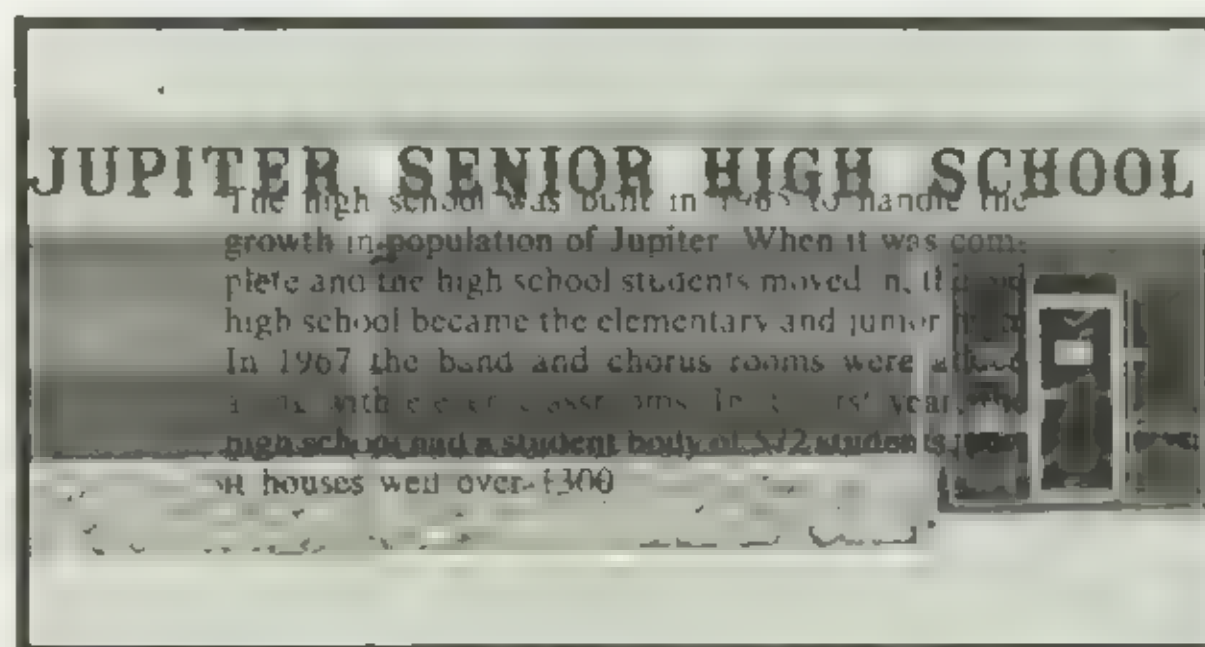 JUPITER SENIOR HIGH SCHOOL
The high school was built in 1965 to handle the
growth in population of Jupiter When it was com-
plete and the high school students moved in, the old
high school became the elementary and junior high
In 1967 the band and chorus rooms were added
with classrooms year, the
high school had a student body of students
it houses well over 1300